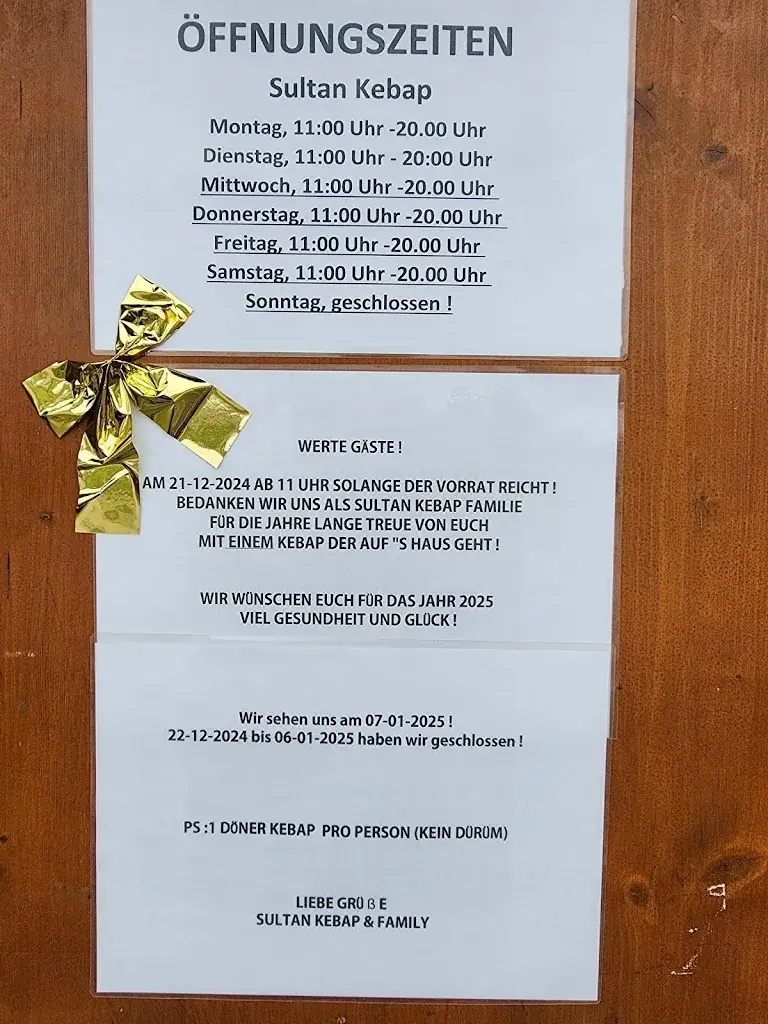 ÖFFNUNGSZEITEN
Sultan Kebap
Montag, 11:00 Uhr -20.00 Uhr
Dienstag, 11:00 Uhr - 20:00 Uhr
Mittwoch, 11:00 Uhr -20.00 Uhr
Donnerstag, 11:00 Uhr -20.00 Uhr
Freitag, 11:00 Uhr -20.00 Uhr
Samstag, 11:00 Uhr -20.00 Uhr
Sonntag, geschlossen !
WERTE GÄSTE !
AM 21-12-2024 AB 11 UHR SOLANGE DER VORRAT REICHT !
BEDANKEN WIR UNS ALS SULTAN KEBAP FAMILIE
FÜR DIE JAHRE LANGE TREUE VON EUCH
MIT EINEM KEBAP DER AUF "S HAUS GEHT !
WIR WÜNSCHEN EUCH FÜR DAS JAHR 2025
VIEL GESUNDHEIT UND GLÜCK !
Wir sehen uns am 07-01-2025 !
22-12-2024 bis 06-01-2025 haben wir geschlossen !
PS :1 DÖNER KEBAP PRO PERSON (KEIN DÜRÜM)
LIEBE GRÜ ß E
SULTAN KEBAP & FAMILY